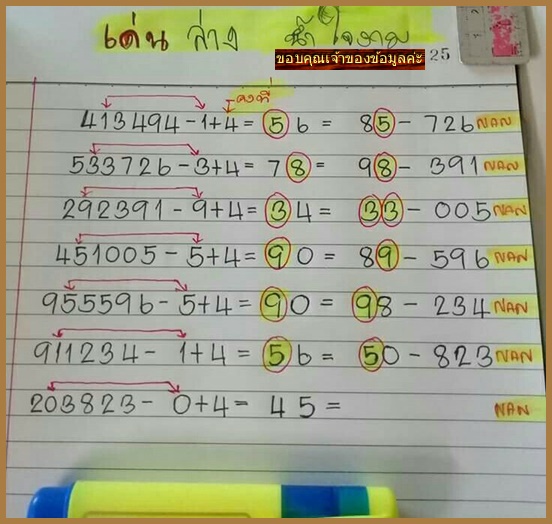 เด่น ล่าง น้ำใจงาม
ขอบคุณเจ้าของข้อมูลค่ะ 25
คงที่
413494-1+4=56= 85-726 NAN
533726-3+4=78= 98-391 NAN
292391-9+4=34= 33-005 NAN
451005-5+4=90= 89-596 NAN
955596-5+4=90= 98-234 NAN
911234-1+4=56= 50-823 NAN
203823-0+4=45= NAN